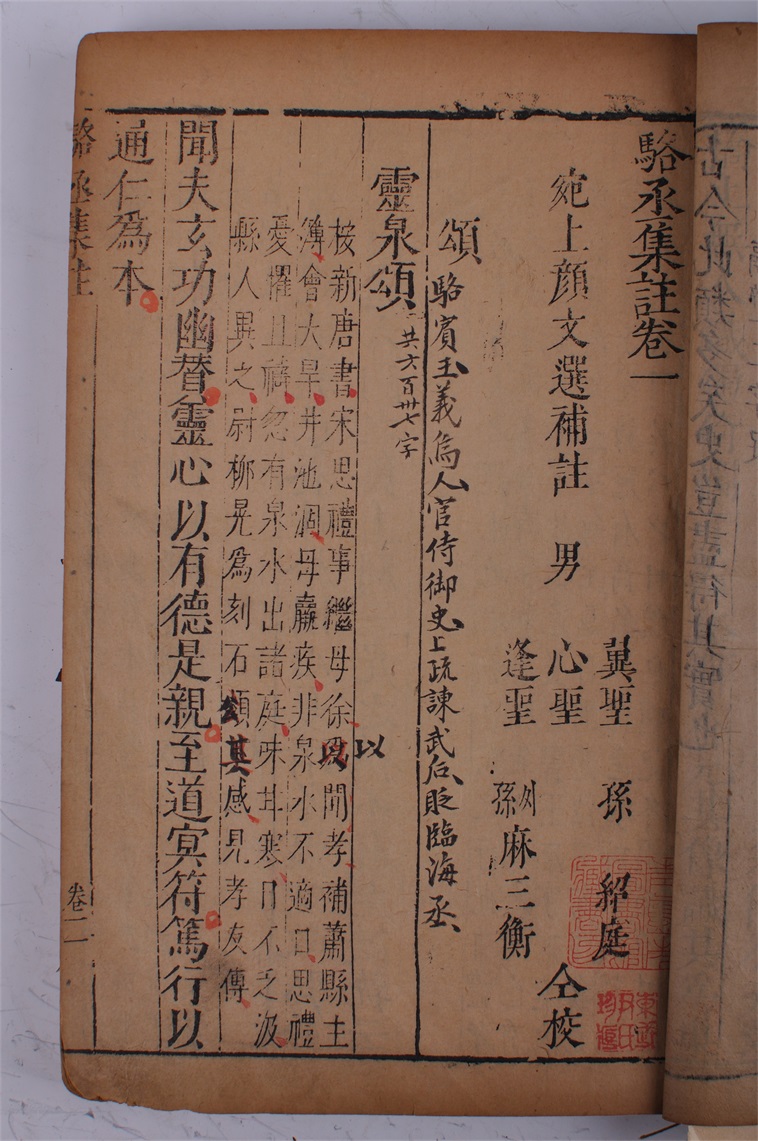 駱丞集註卷一
宛上顏文選補註 男
冀聖
心聖
逢聖
孫 紹庭
外孫 麻三衡
仝校
頌
駱賓王義烏人官侍御史上疏諫武后貶臨海丞
靈泉頌
共六百卅七字
按新唐書宋思禮事繼母徐以聞孝補蕭縣主
以
簿會大旱井池涸母羸疾非泉水不適口思禮
憂懼且禱忽有泉水出諸庭味甘寒日不乏汲
縣人異之尉柳晃爲刻石頌其感見孝友傳
聞夫玄功幽替靈心以有德是親至道冥符篤行以
通仁爲本
駱丞集註
卷一